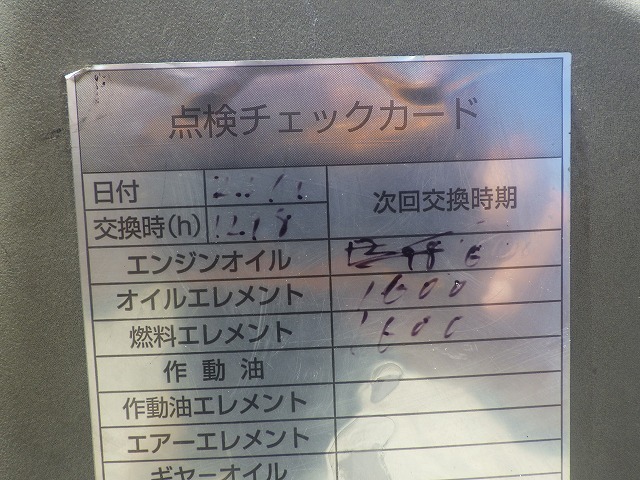 点検チェックカード
日付
交換時(h) 1218 次回交換時期
エンジンオイル
オイルエレメント 1600
燃料エレメント 1600
作動油
作動油エレメント
エアーエレメント
ギヤーオイル